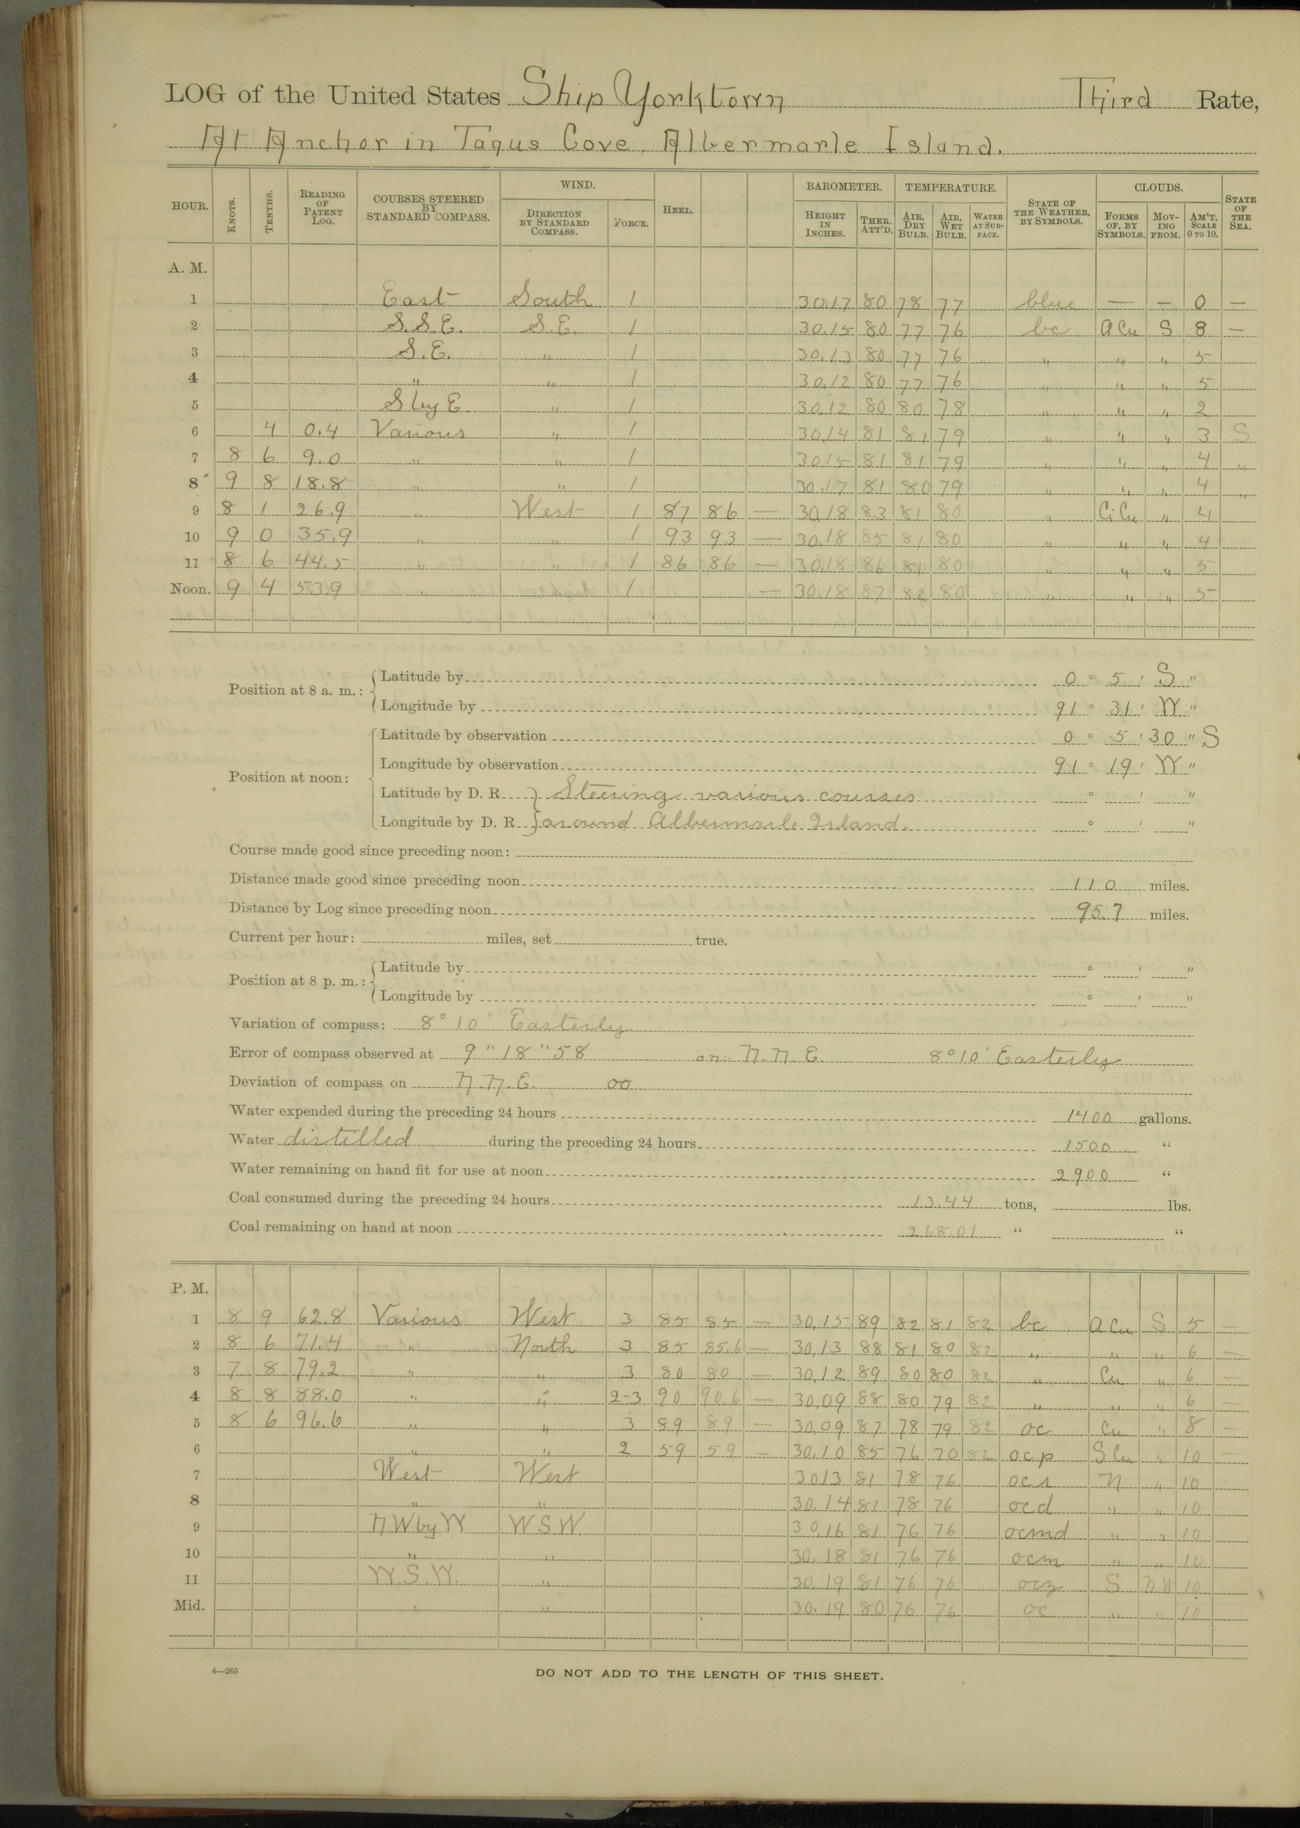 LOG of the United States Ship Yorktown Third Rate,
At Anchor in Tagus Cove, Albermarle Island.
HOUR. KNOTS. TENTHS. READING OF PATENT LOG. COURSES STEERED BY STANDARD COMPASS. WIND. DIRECTION BY STANDARD COMPASS. FORCE. HEEL. BAROMETER. HEIGHT IN INCHES. THER. ATT'D. TEMPERATURE. AIR, DRY BULB. AIR, WET BULB. WATER AT SURFACE. STATE OF THE WEATHER, BY SYMBOLS. CLOUDS. FORMS OF, BY SYMBOLS. MOVING FROM. AM'T. SCALE 0 TO 10. STATE OF THE SEA.
A. M.
1 East South 1 30.17 80 78 77 blue — — 0 —
2 S.S.E. S.E. 1 30.15 80 77 76 bc aCu S 8 —
3 S.E. " 1 30.13 80 77 76 " " " 5
4 " " 1 30.12 80 77 76 " " " 5
5 S by E " 1 30.12 80 80 78 " " " 2
6 4 0.4 Various " 1 30.14 81 81 79 " " " 3 S
7 8 6 9.0 " " 1 30.15 81 81 79 " " " 4 "
8 9 8 18.8 " " 1 30.17 81 80 79 " " " 4 "
9 8 1 26.9 " West 1 87 86 — 30.18 83 81 80 CiCu " 4
10 9 0 35.9 " " 1 93 93 — 30.18 85 81 80 " " " 4
11 8 6 44.5 " " 1 86 86 — 30.18 86 81 80 " " " 5
Noon. 9 4 53.9 " 1 — 30.18 87 82 80 " " " 5
Position at 8 a. m.: Latitude by 0 ° 5 ' S "
Longitude by 91 ° 31 ' W "
Position at noon: Latitude by observation 0 ° 5 ' 30 " S
Longitude by observation 91 ° 19 ' W "
Latitude by D. R. } Steering various courses ° ' "
Longitude by D. R. } around Albermarle Island. ° ' "
Course made good since preceding noon:
Distance made good since preceding noon 110 miles.
Distance by Log since preceding noon 95.7 miles.
Current per hour: miles, set true.
Position at 8 p. m.: Latitude by ° ' "
Longitude by ° ' "
Variation of compass: 8° 10' Easterly
Error of compass observed at 9 " 18 " 58 on N.N.E. 8° 10' Easterly
Deviation of compass on N.N.E. 00
Water expended during the preceding 24 hours 1400 gallons.
Water distilled during the preceding 24 hours 1500 "
Water remaining on hand fit for use at noon 2900 "
Coal consumed during the preceding 24 hours 13.44 tons, lbs.
Coal remaining on hand at noon 268.01 " "
P. M.
1 8 9 62.8 Various West 3 85 85 — 30.15 89 82 81 82 bc aCu S 5 —
2 8 6 71.4 " North 3 85 85.6 — 30.13 88 81 80 82 " " " 6 —
3 7 8 79.2 " " 3 80 80 — 30.12 89 80 80 82 " Cu " 6 —
4 8 8 88.0 " " 2-3 90 90.6 — 30.09 88 80 79 82 " " " 6 —
5 8 6 96.6 " " 3 89 89 — 30.09 87 78 79 82 oc Cu " 8 —
6 " " 2 59 59 — 30.10 85 76 70 82 ocp S Cu " 10 —
7 West West 30.13 81 78 76 ocr N " 10
8 " " 30.14 81 78 76 ocd " " 10
9 NW by W WSW 30.16 81 76 76 ocmd " " 10
10 " " 30.18 81 76 76 ocm " " 10
11 W.S.W. " 30.19 81 76 76 ocz S NW 10
Mid. " " 30.19 80 76 76 oc " " 10
4—265
DO NOT ADD TO THE LENGTH OF THIS SHEET.